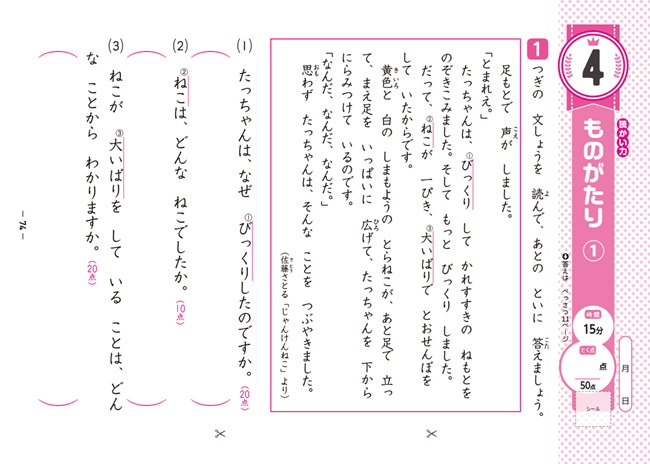 4
読かい力
ものがたり ①
●答えは べっさつ11ページ
時間
15分
とく点
点
50点
シール
月 日
1 つぎの 文しょうを 読んで、あとの といに 答えましょう。
足もとで 声が しました。
「とまれえ。」
たっちゃんは、①びっくり して かれすすきの ねもとを
のぞきこみました。そして もっと びっくり しました。
だって、②ねこが 一ぴき、③大いばりで とおせんぼを
して いたからです。
黄色と 白の しまもようの とらねこが、あと足で 立っ
て、まえ足を いっぱいに 広げて、たっちゃんを 下から
にらみつけて いるのです。
「なんだ、なんだ、なんだ。」
思わず たっちゃんは、そんな ことを つぶやきました。
(佐藤さとる「じゃんけんねこ」より)
(1) たっちゃんは、なぜ ①びっくりしたのですか。(20点)
(2) ②ねこは、どんな ねこでしたか。(10点)
(3) ねこが ③大いばりを して いる ことは、どん
な ことから わかりますか。(20点)
― 74 ―